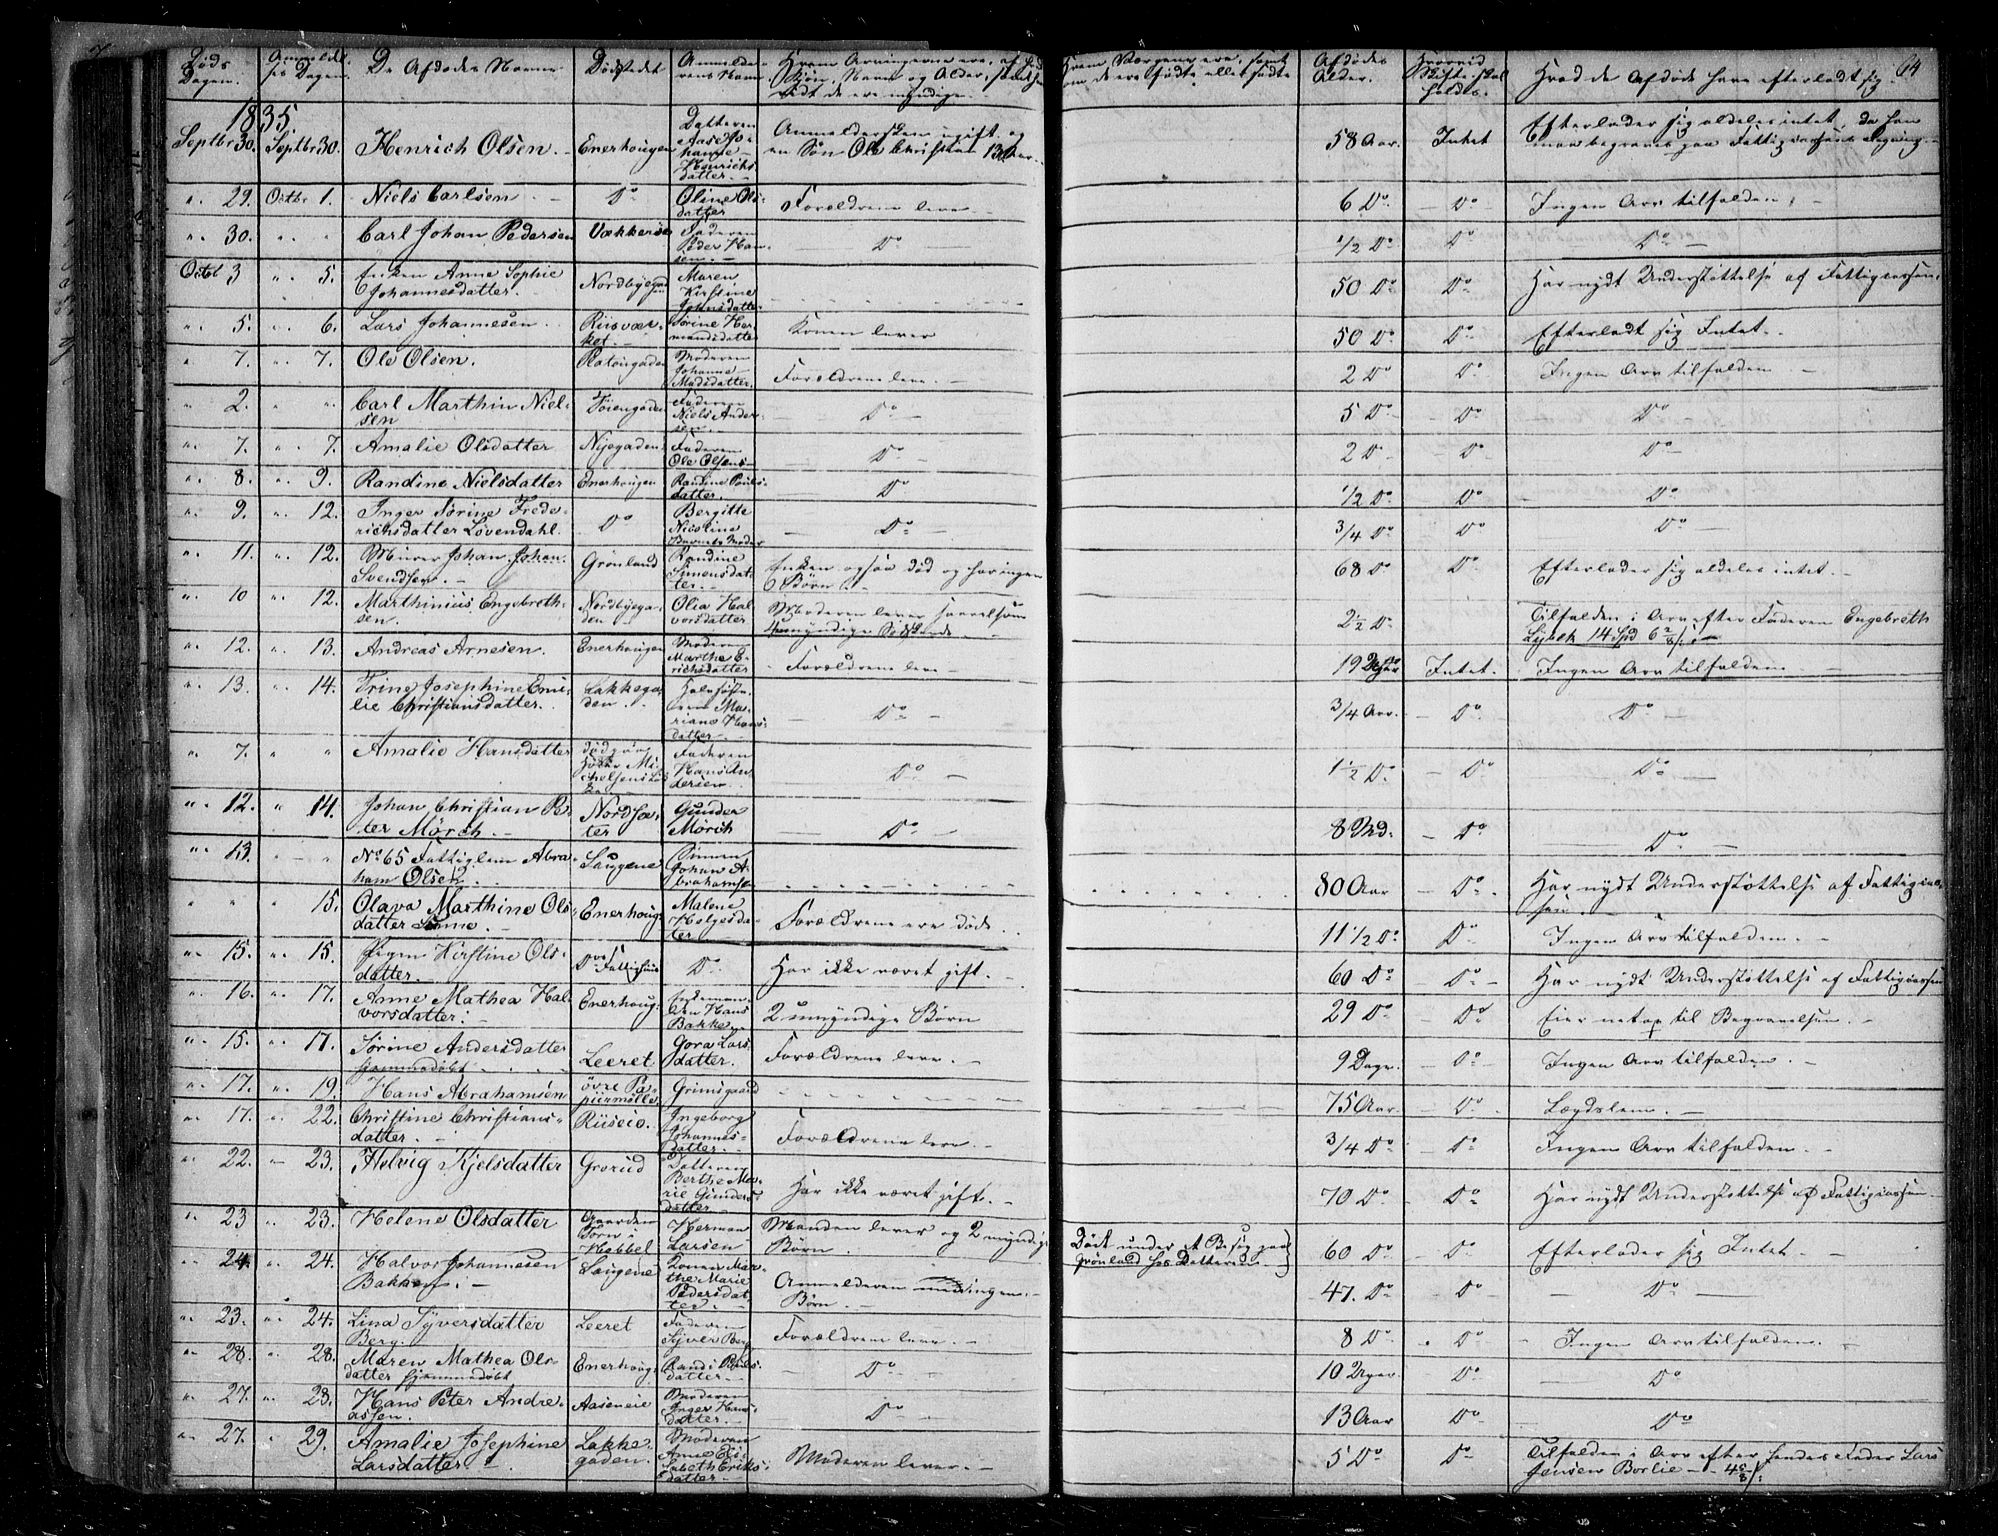 Døds Dagen. Anmeldelses Dagen. De Afdødes Navne Dødstedet Anmelderens Navn Hvem Arvingerne ere, Afdødes Alder. Hvorvidt Skifte skal holdes. Hvad de Afdøde have efterladt sig. 64
1835
Septbr 30. Septbr 30. Henrich Olsen. Enerhougen Datteren Aase Johanne Henrichsdatter. Anmeldersken ugift og en Søn Ole Christian 13 Aar. 58 Aar. Intet Efterlader sig aldeles intet, da han maa begraves paa Fattigcassens Regning.
" 29. Octbr 1. Niels Carlsen Do Oline Olsdatter Forældrene leve 6 Do Do Ingen Arv tilfalden.
" 30. " " Carl Johan Pedersen Vækkerøe Faderen Peder Hansen. Do 1/2 Do Do Do
Octbr 3 " 5. Enken Anne Sophie Johannesdatter. Nordbyegaden Maren Kirstine Johnsdatter 50 Do Do Har nydt Understøttelse af Fattigcassen.
" 5. " 6. Lars Johannesen Riisværket. Sørine Hermandsdatter Konen lever 50 Do Do Efterladt sig Intet.
" 7. " 7. Ole Olsen. Rotougaden Moderen Johanne Madsdatter. Forældrene leve. 2 Do Do Ingen Arv tilfalden
" 2. " " Carl Marthin Nielsen Tøiengaden Faderen Niels Andersen. Do 5 Do Do Do
" 7. " 7. Amalie Olsdatter Nyegaden Faderen Ole Olsen Do 2 Do Do Do
" 8. " 9. Randine Nielsdatter Enerhougen Randine Poulsdatter. Do 1/2 Do Do Do
" 9. " 12. Inger Sørine Frederichsdatter Løvendahl. Do Bergitte Nicoline Barnets Moder Do 3/4 Do Do Do
" 11. " 12. Murer Johan Johan Svendsen. Grønland Randine Simensdatter. Enken ogsaa død og har ingen Børn. 68 Do Do Efterlader sig aldeles intet.
" 10 " 12. Marthinius Engebrethsen. Nordbyegaden Olia Halvorsdatter Moderen lever saavelsom umyndige Sødskende 2 1/2 Do Tilfalden i Arv efter Faderen Engebreth Lybek 14 Spd
" 12. " 13. Andreas Arnesen. Enerhougen Moderen Marthe Erichsdatter Forældrene leve 19 Uger Intet. Ingen Arv tilfalden
" 13. " 14. Trine Josephine Emilie Christiansdatter. Lakkegaden. Mariane Hansdatter Do 3/4 Aar. Do Do
" 7. " " Amalie Hansdatter Faderen Hans Andersen. Do 1 1/2 Do Do Do
" 12. " 14. Johan Christian Peter Mörch. Nordsæter Gunder Mörch Do 8 Md. Do Do
" 13. " " No 65 Fattiglem Abraham Olsen. Laugene Sønnen Johan Abrahamsen 80 Aar Do Har nydt Understøttelse af Fattigcassen.
" " " 15. Olava Marthine Olsdatter Enerhoug. Malene Helgesdatter Forældrene ere døde. 11 1/2 Do Do Ingen Arv tilfalden.
" 15. " 15. Pigen Kirstine Olsdatter. Fattighuus Do. Har ikke været gift. 60 Do Do Har nydt Understøttelse af Fattigcassen
" 16. " 17. Anne Mathea Halvorsdatter. Enerhoug. Enkemanden Hans Bakke 2 umyndige Børn 29 Do Do Eier netop til Begravelsen.
" 15. " 17. Sørine Andersdatter hjemmedøbt. Leeret Gora Larsdatter. Forældrene leve. 9 Dage. Do Ingen Arv tilfalden.
" 17. " 19. Hans Abrahamsen øvre Papiermølle Grimsgaard 75 Aar. Do Lægdslem.
" 17. " 22. Christine Christiansdatter. Riiseie. Ingeborg Johannesdatter. Forældrene leve. 3/4 Do Do Ingen Arv tilfalden.
" 22. " 23. Helvig Kjelsdatter Grorud Datteren Berthe Marie Gundersdatter. Har ikke været gift. 70 Do Do Har nydt Understøttelse af Fattigcassen.
" 23 " 23. Helene Olsdatter Gaarden Torn i Hobbel Herman Larsen Manden lever og 2 myndige Børn. Døet under et Besøg paa Grønland hos Datteren. 60 Do Do Efterlader sig Intet.
" 24. " 24. Halvor Johannesen Bakken. Laugene Konen Marthe Marie Pedersdatter. Anmelderen ingen Børn. 47. Do Do Do
" 23. " 24. Lina Syversdatter Berg. Leeret Faderen Syver Berg Forældrene leve. 8 Do Do Ingen Arv tilfalden.
" 28. " 28. Maren Mathea Olsdatter hjemmedøbt Enerhoug. Randi Poulsdatter. Do 10 Uger. Do Do
" 27. " 28. Hans Peter Andreassen. Aaseneie Moderen Inger Hansdatter. Do 13 Aar Do Do
" 27. " 29. Amalie Josephine Larsdatter. Lakkegaden. Moderen Anne Elisabeth Eriksdatter Moderen lever. 5 Do Do Tilfalden i Arv efter hendes Fader Lars Jensen Borlie